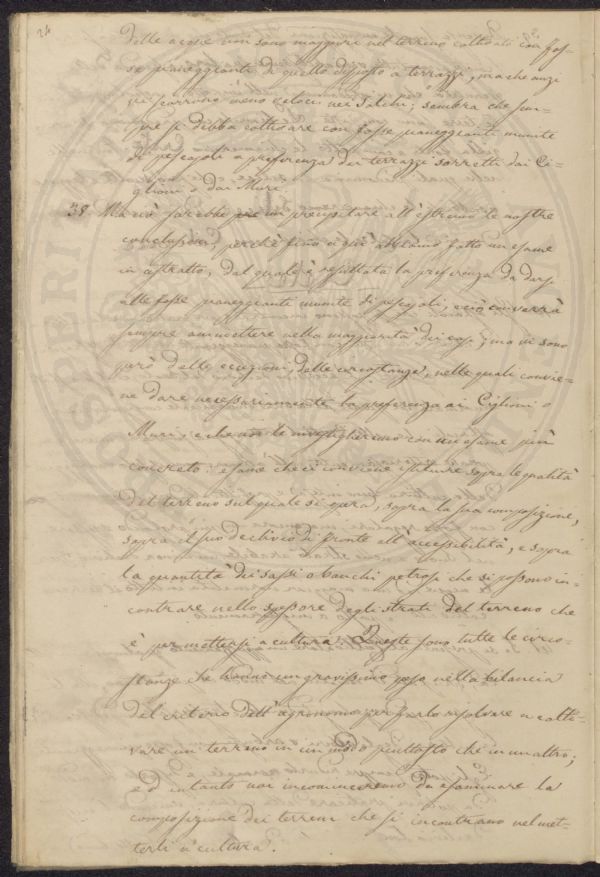 24
delle acque non sono maggiori nel terreno coltivato con fos-
se paneggianti di quello disposto a terrazzi, ma che anzi
qui scorrono meno veloci nei solchi; sembra che sem-
pre si debba coltivare con fosse paneggianti munite
di pescajoli a preferenza dei terrazzi sorretti dai Ci-
glioni o dai Muri.
38. Ma ciò sarebbe un precipitare all'estremo le nostre
conclusioni, perchè fino a quì abbiamo fatto un esame
in astratto, dal quale è resultata la preferenza da darsi
alle fosse paneggianti munite di pescajoli, e ciò converrà
sempre ammettere nella maggiorità dei casi; ma vi sono
però delle eccezioni, delle circostanze, nelle quali convie-
ne dare necessariamente la preferenza ai Ciglioni o
Muri, e che noi le investigheremo con un esame più
concreto: esame che ci conviene istituire sopra le qualità
del terreno sul quale si opera, sopra la sua composizione,
sopra il suo declivio di fronte all'accessibilità, e sopra
la quantità dei sassi o banchi petrosi che si possono in-
contrare nello spessore degli strati del terreno che
è per mettersi a cultura. Queste sono tutte le circo-
stanze che hanno un gravissimo peso nella bilancia
del criterio dell'agronomo per farlo risolvere a colti-
vare un terreno in un modo piuttosto che in un altro;
ed intanto noi incominceremo da esaminare la
composizione dei terreni che si incontrano nel met-
terli a cultura.